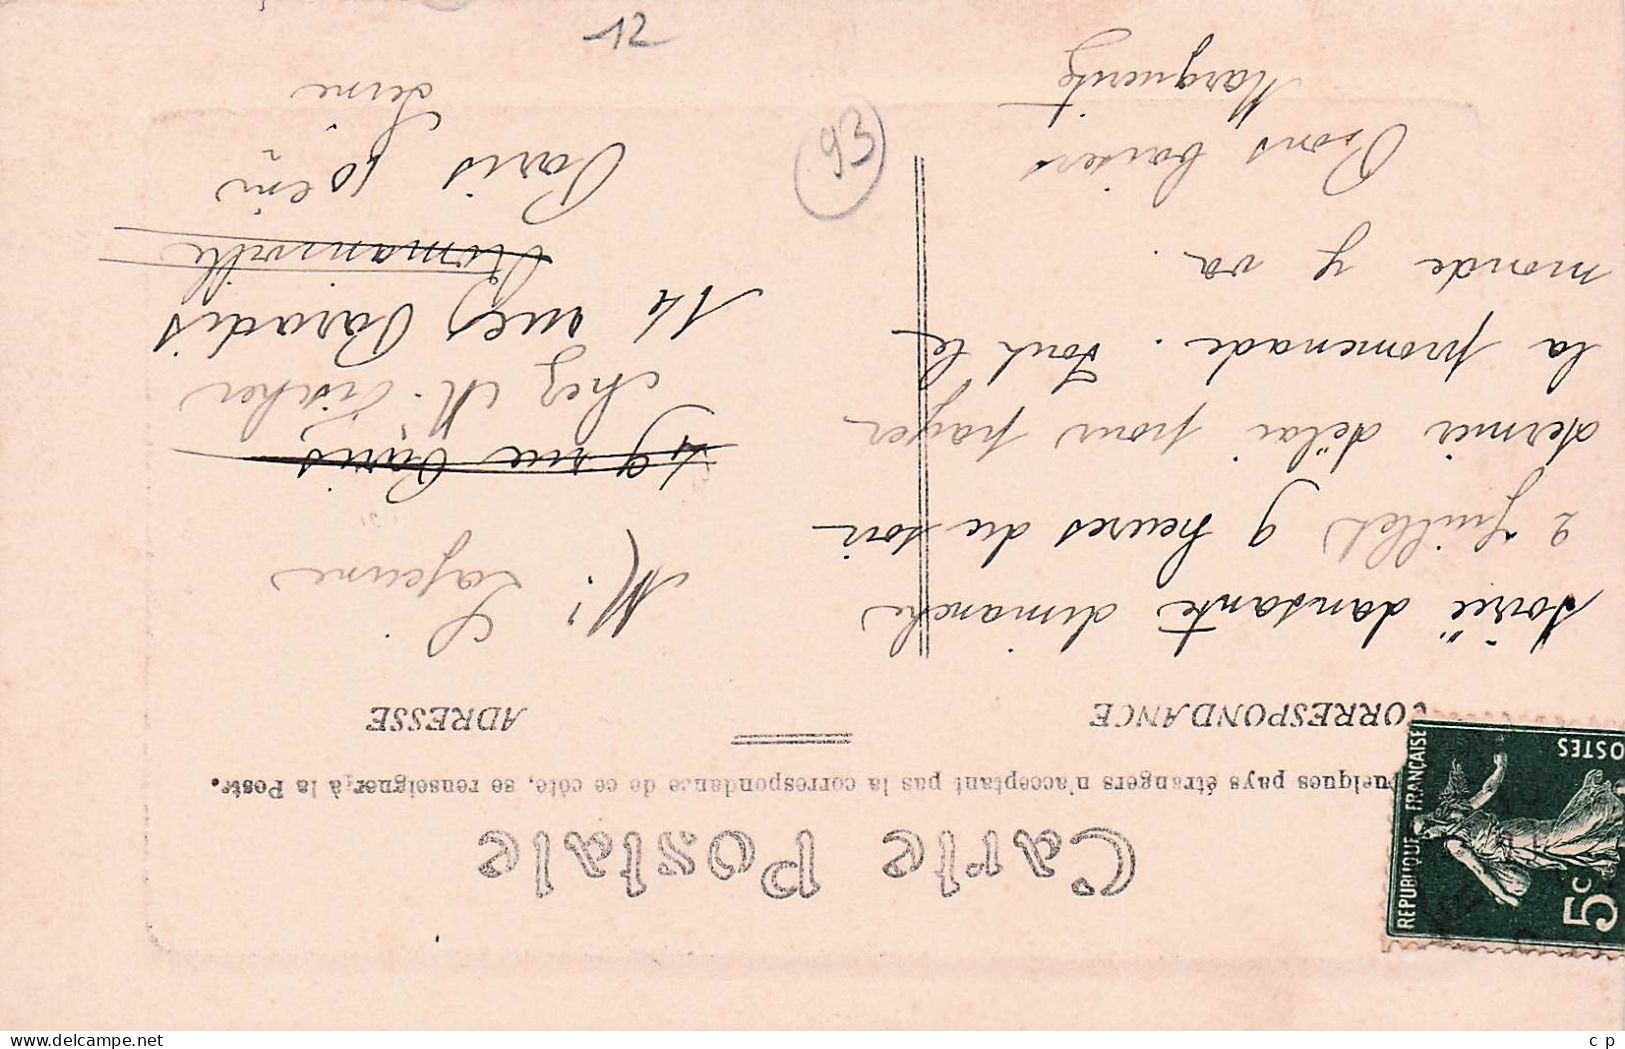 Carte Postale
Quelques pays étrangers n'acceptant pas la correspondance de ce côté, se renseigner à la Poste.
CORRESPONDANCE
Soirée dansante dimanche
2 Juillet 9 heures du soir
dernier délai pour payer
la promenade. Tout le
monde y va.
Bons baisers
Marguerite
ADRESSE
Mr. Lajeune
49 rue Paris
chez M. Fischer
14 rue Paradis
Romainville
Paris 10em
Seine
REPUBLIQUE FRANÇAISE
POSTES
5c
93
12
delcampe.net
c p